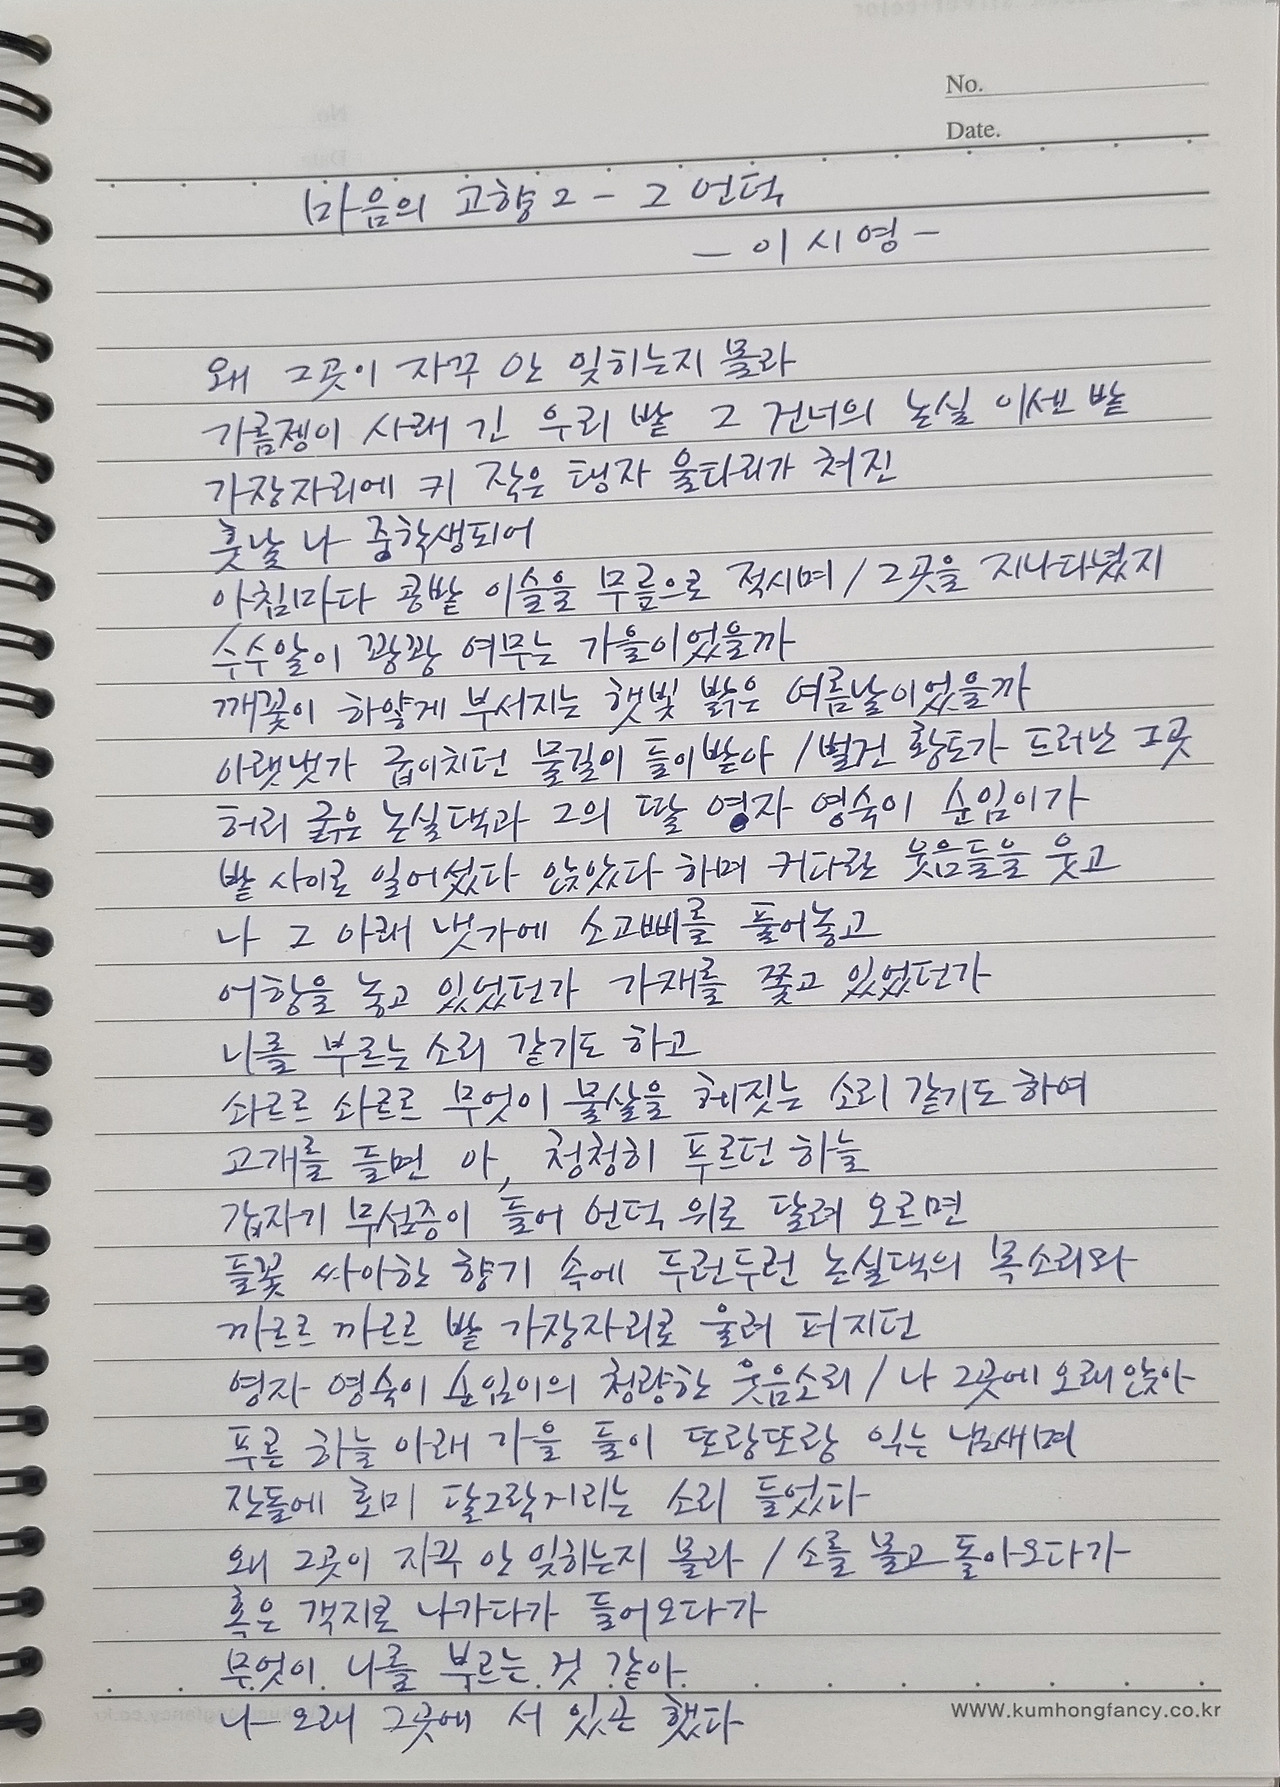 No.
Date.
마음의 고향 2 - 그 언덕
- 이시영 -
왜 그곳이 자꾸 안 잊히는지 몰라
가름젱이 사래 긴 우리 밭 그 건너의 논실 이센 밭
가장자리에 키 작은 탱자 울타리가 쳐진
훗날 나 중학생되어
아침마다 콩밭 이슬을 무릎으로 적시며 / 그곳을 지나다녔지
수수알이 꽝꽝 여무는 가을이었을까
깨꽃이 하얗게 부서지는 햇빛 밝은 여름날이었을까
아랫냇가 굽이치던 물길이 들이받아 / 벌건 황토가 드러난 그곳
허리 굵은 논실댁과 그의 딸 영자 영숙이 순임이가
밭 사이로 일어섰다 앉았다 하며 커다란 웃음들을 웃고
나 그 아래 냇가에 소고삐를 풀어놓고
어항을 놓고 있었던가 가재를 쫓고 있었던가
나를 부르는 소리 같기도 하고
솨르르 솨르르 무엇이 물살을 헤짓는 소리 같기도 하여
고개를 들면 아, 청청히 푸르던 하늘
갑자기 무섬증이 들어 언덕 위로 달려 오르면
들꽃 싸아한 향기 속에 두런두런 논실댁의 목소리와
까르르 까르르 밭 가장자리로 울려 퍼지던
영자 영숙이 순임이의 청량한 웃음소리 / 나 그곳에 오래 앉아
푸른 하늘 아래 가을 들이 또랑또랑 익는 냄새며
잔돌에 호미 달그락거리는 소리 들었다
왜 그곳이 자꾸 안 잊히는지 몰라 / 소를 몰고 돌아오다가
혹은 객지로 나가다가 들어오다가
무엇이 나를 부르는 것 같아
나 오래 그곳에 서 있곤 했다
www.kumhongfancy.co.kr